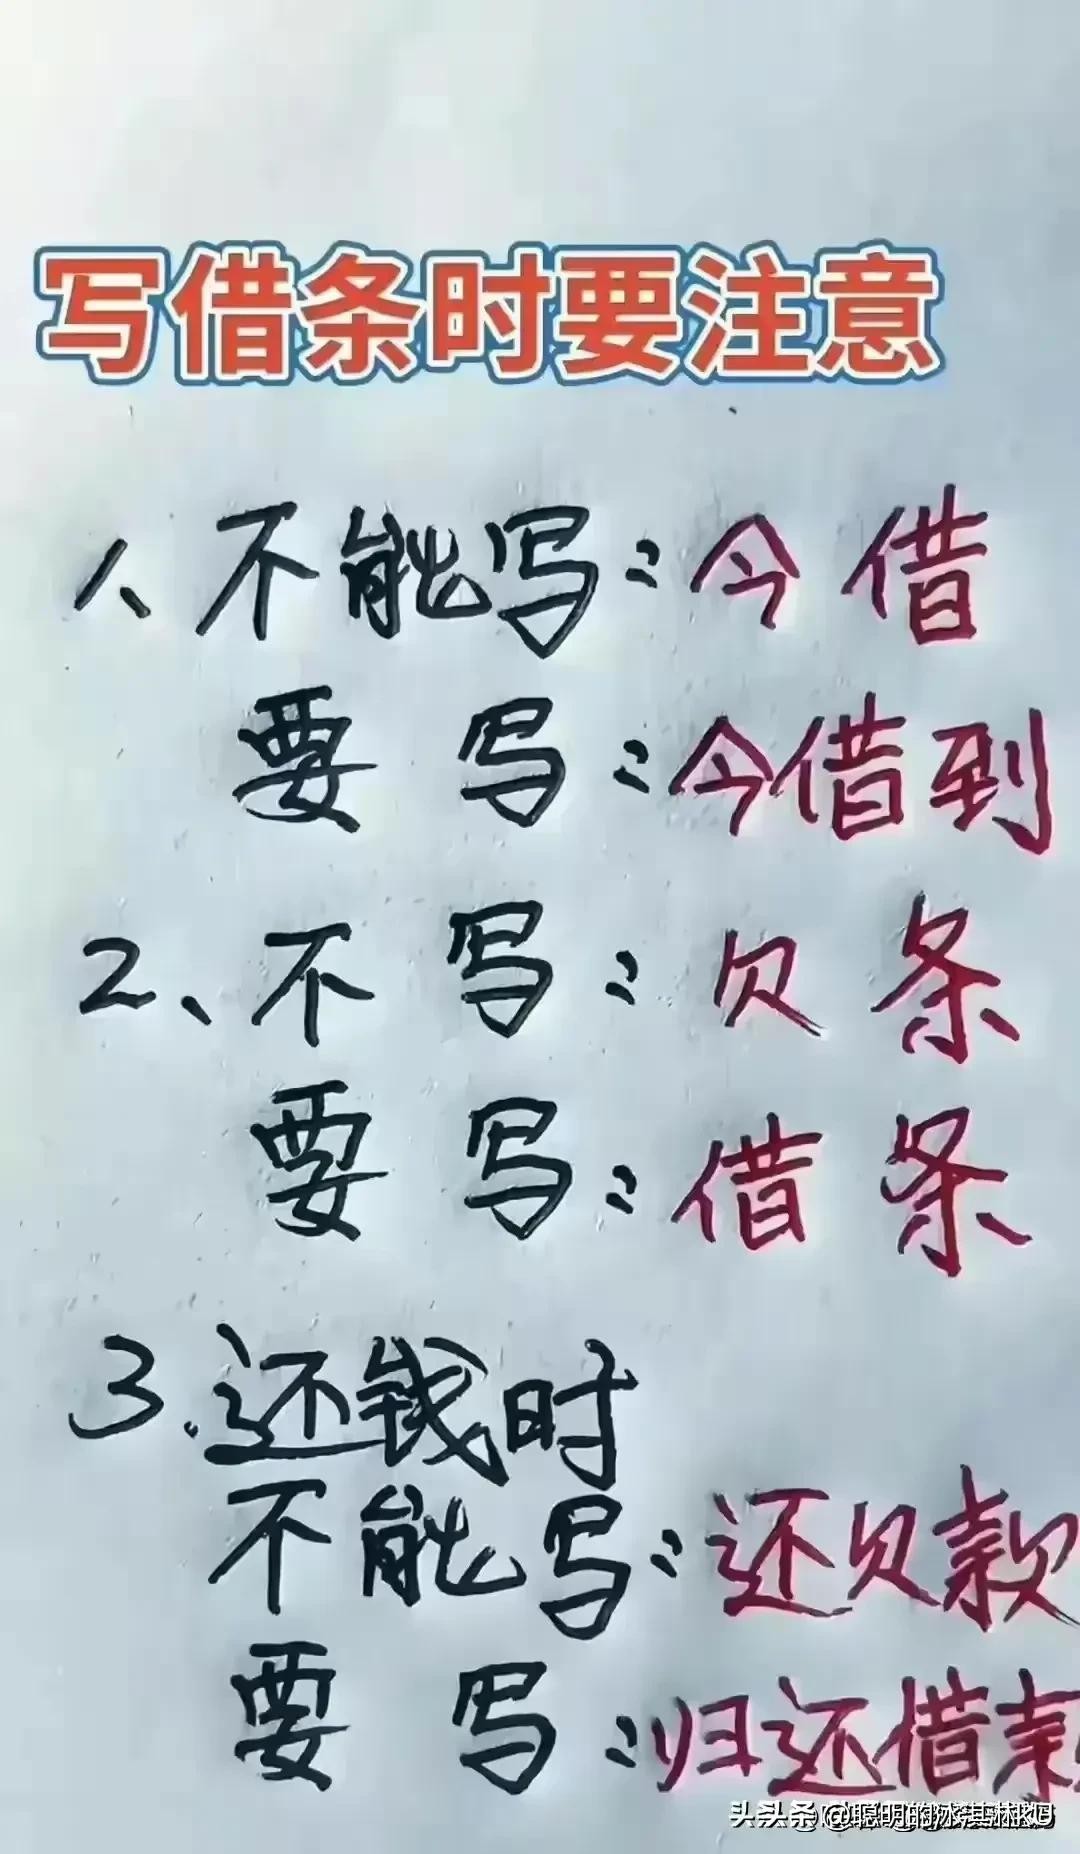 写借条时要注意
1、不能写：今借
要写：今借到
2、不写：欠条
要写：借条
3.还钱时
不能写：还欠款
要写：归还借款
头头条@聪明的冰淇淋